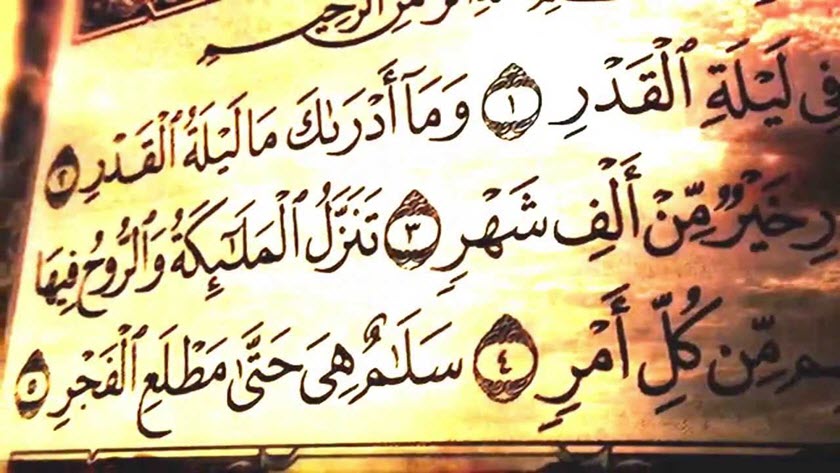 ٱلرَّحْمَٰنِ ٱلرَّحِيمِ
فِى لَيْلَةِ ٱلْقَدْرِ ١ وَمَآ أَدْرَىٰكَ مَا لَيْلَةُ ٱلْقَدْرِ ٢
خَيْرٌ مِّنْ أَلْفِ شَهْرٍ ٣ تَنَزَّلُ ٱلْمَلَٰٓئِكَةُ وَٱلرُّوحُ فِيهَا
مِّن كُلِّ أَمْرٍ ٤ سَلَٰمٌ هِىَ حَتَّىٰ مَطْلَعِ ٱلْفَجْرِ ٥